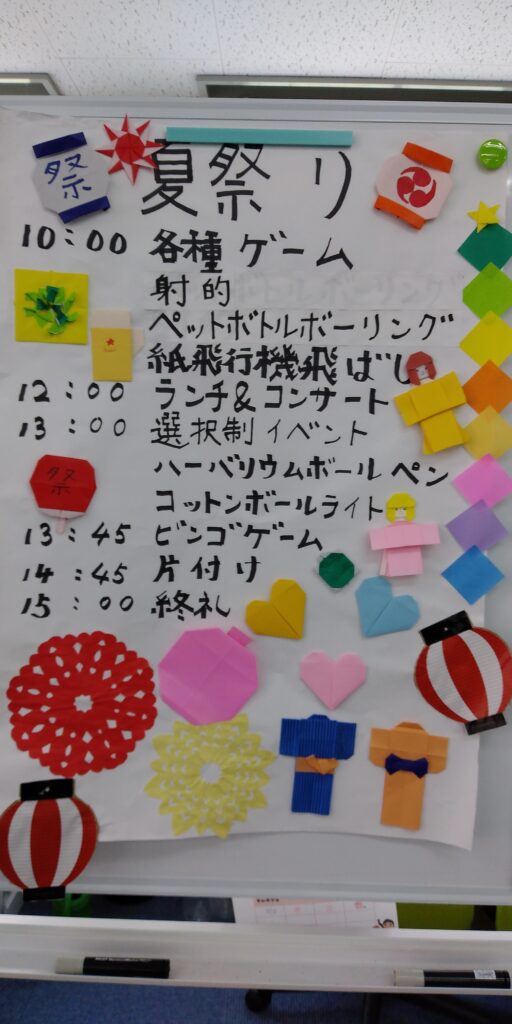 祭
夏祭り
10:00 各種ゲーム
射的
ペットボトルボーリング
紙飛行機飛ばし
12:00 ランチ&コンサート
13:00 選択制イベント
ハーバリウムボールペン
祭
コットンボールライト
13:45 ビンゴゲーム
14:45 片付け
15:00 終礼